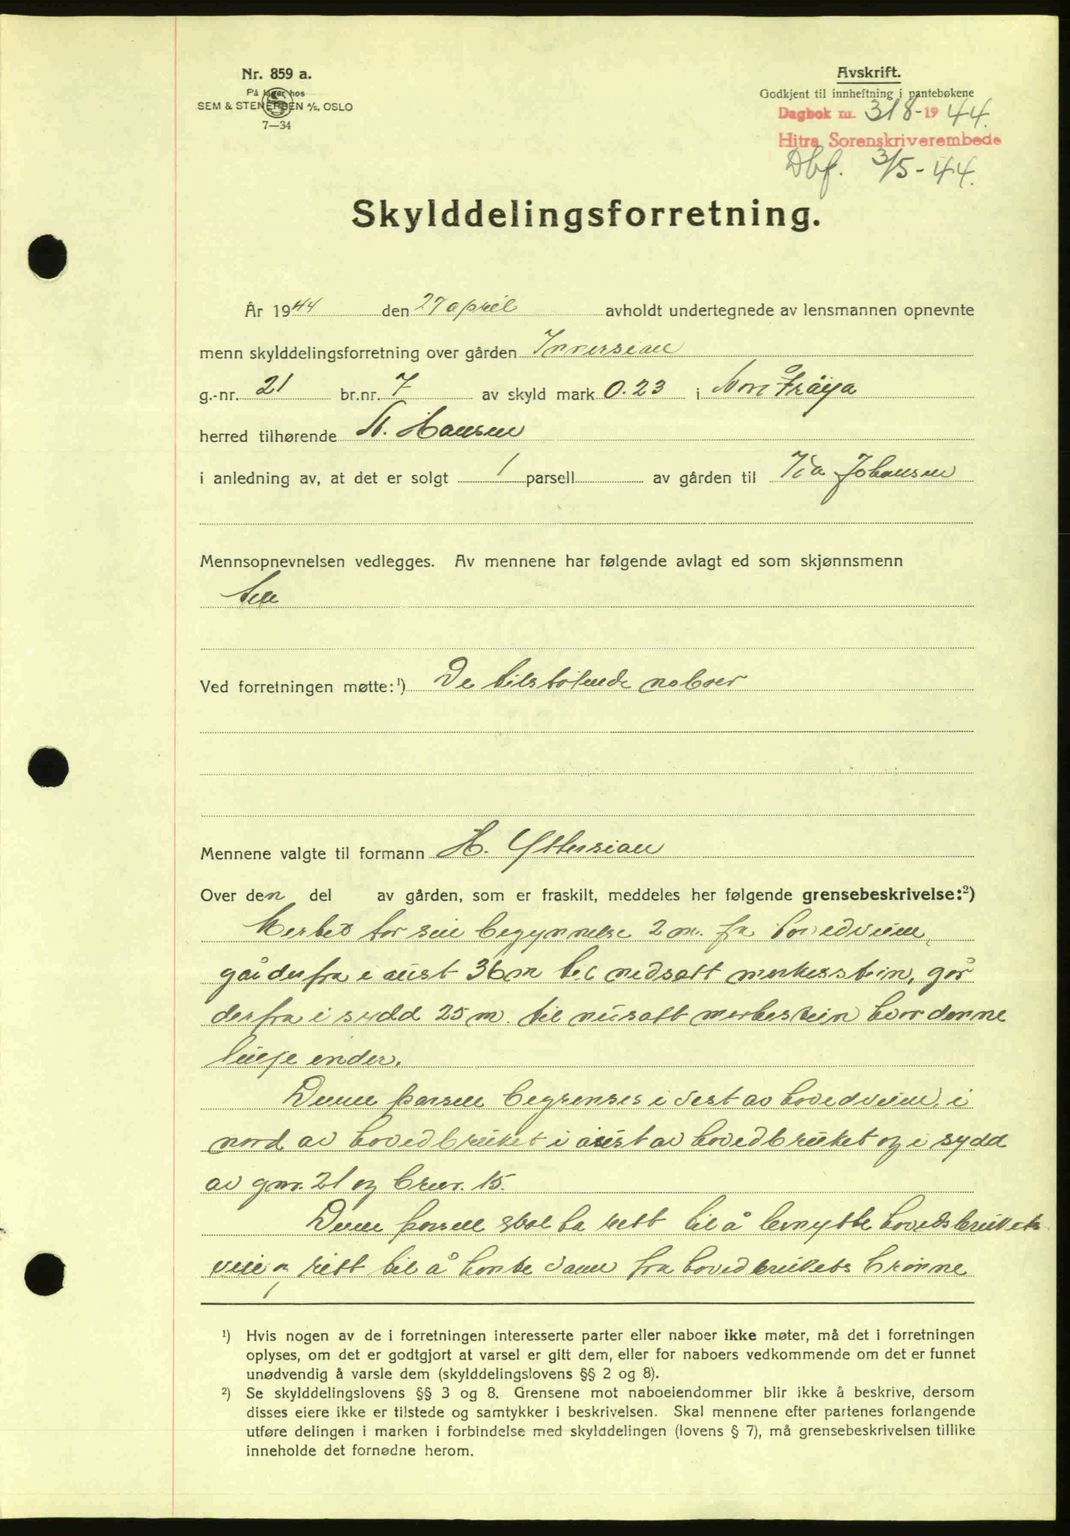 Nr. 859 a.
På lager hos
SEM & STENERSEN A/S, OSLO
7—34
Avskrift.
Godkjent til innheftning i pantebøkene
Dagbok nr. 318-1944.
Hitra Sorenskriverembede
Dbf. 3/5-44.
Skylddelingsforretning.
År 1944 den 27 april avholdt undertegnede av lensmannen opnevnte
menn skylddelingsforretning over gården Innersian
g.-nr. 21 br.nr. 7 av skyld mark 0.23 i Nord Frøya
herred tilhørende A. Hansen
i anledning av, at det er solgt 1 parsell av gården til Ida Johansen
Mennsopnevnelsen vedlegges. Av mennene har følgende avlagt ed som skjønnsmenn
Alle
Ved forretningen møtte:¹) De tilstøtende naboer
Mennene valgte til formann H. Yttersian
Over den del av gården, som er fraskilt, meddeles her følgende grensebeskrivelse:²)
Merket tar sin begynnelse 2 m. fra hovedveien,
går derfra i aust 36 m til nedsatt merkesstein, går
derfra i sydd 25 m. til nedsatt merkestein hvor denne
linje ender.
Denne parsell begrenses i vest av hovedveien, i
nord av hovedbruket i aust av hovedbruket og i sydd
av gnr. 21 og brnr. 15.
Denne parsell skal ha rett til å benytte hovedsbrukets
vei og rett til å hente vann fra hovedbrukets brønne
¹) Hvis nogen av de i forretningen interesserte parter eller naboer ikke møter, må det i forretningen
oplyses, om det er godtgjort at varsel er gitt dem, eller for naboers vedkommende om det er funnet
unødvendig å varsle dem (skylddelingslovens §§ 2 og 8).
²) Se skylddelingslovens §§ 3 og 8. Grensene mot naboeiendommer blir ikke å beskrive, dersom
disses eiere ikke er tilstede og samtykker i beskrivelsen. Skal mennene efter partenes forlangende
utføre delingen i marken i forbindelse med skylddelingen (lovens § 7), må grensebeskrivelsen tillike
inneholde det fornødne herom.